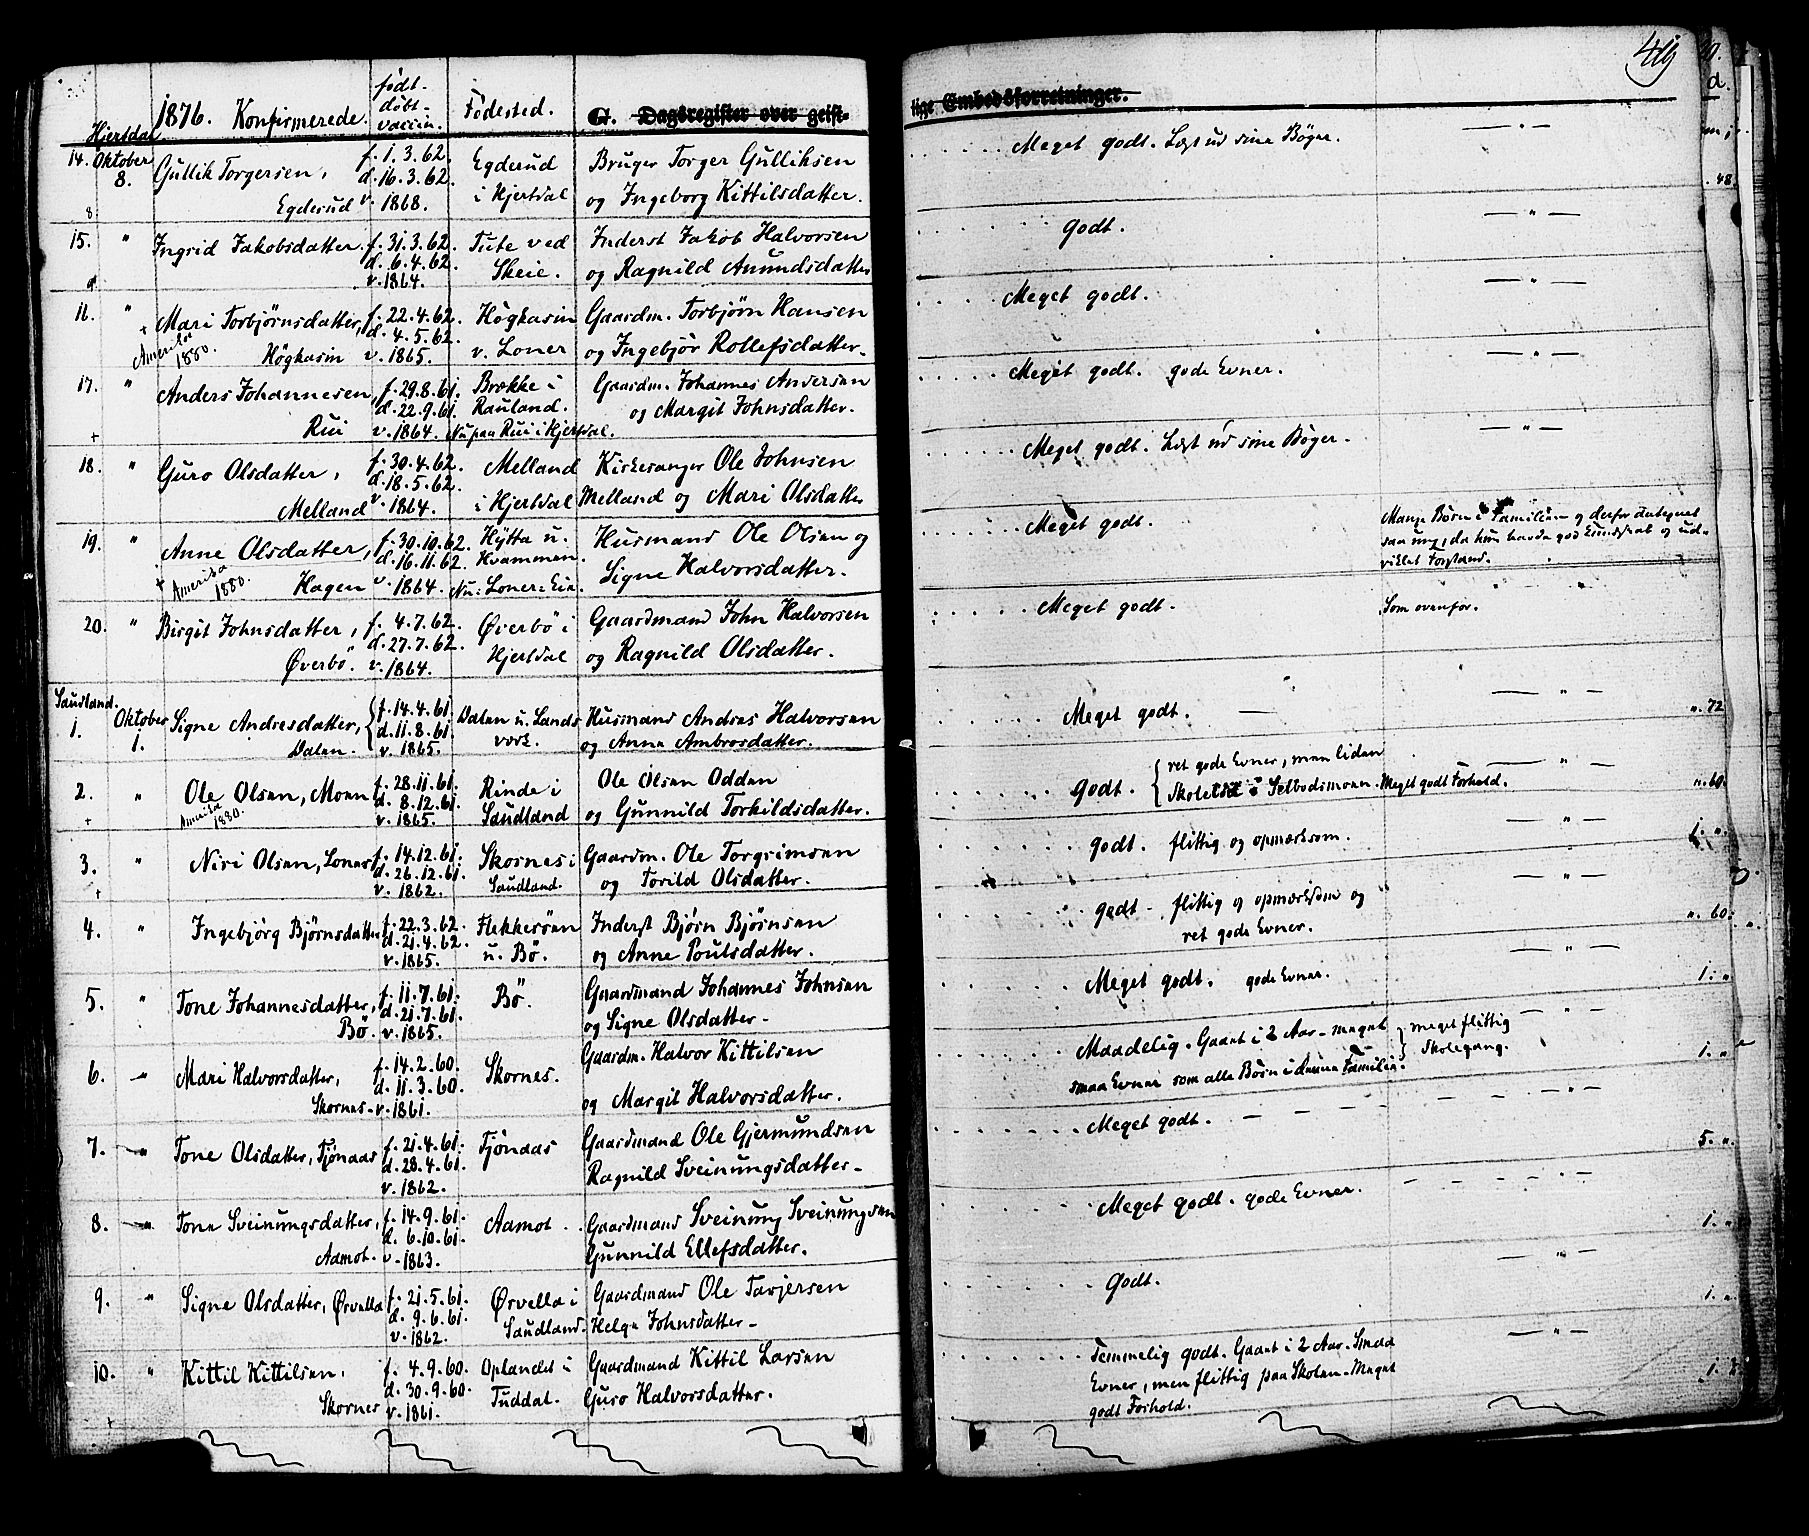 419
1876. Konfirmerede. født- døbt- vaccin. Fødested. G. Dagsregister over geist-
lige Embedsforretninger.
Hjertdal
14. Oktober 8. Gullik Torgersen, Egderud f. 1.3.62. d. 16.3.62. v. 1868. Egderud i Hjertdal Bruger Torger Gulliksen og Ingeborg Kittilsdatter. Meget godt. Læst ud sine Bøger. — " —
15. " Ingrid Jakobsdatter. f. 31.3.62. d. 6.4.62. v. 1864. Tute ved Skeie. Inderst Jakob Halvorsen og Ragnild Anundsdatter godt. — " —
16. " + Mari Torbjørnsdatter, Høgkasin Amerika 1880. f. 22.4.62. d. 4.5.62. v. 1865. Høgkasin v. Loner Gaardm. Torbjørn Hansen og Ingebjør Rollefsdatter. Meget godt. — " —
17. " Anders Johannesen, Rui f. 29.8.61. d. 22.9.61. v. 1864. Brække i Rauland. Nu paa Rui i Hjertdal. Gaardm. Johannes Andersen og Margit Johnsdatter. Meget godt. gode Evner. — " —
18. " Guro Olsdatter, Melland f. 30.4.62. d. 18.5.62. v. 1864. Melland i Hjertdal Kirkesanger Ole Johnsen Melland og Mari Olsdatter Meget godt. Læst ud sine Bøger. — " —
19. " + Anne Olsdatter, Hagen Amerika 1880. f. 30.10.62. d. 16.11.62. v. 1864. Hytta u. Kvammen. Nu: Loner: Husmand Ole Olsen og Signe Halvorsdatter. Meget godt. Mange Børn i Familien og derfor saa ung, da hun havde god Kundskab og ud- viklet Forstand.
20. " Birgit Johnsdatter, Øverbö. f. 4.7.62. d. 27.7.62. v. 1864. Øverbö i Hjertdal Gaardmand John Halvorsen og Ragnild Olsdatter. Meget godt. Som ovenfor.
Saudland.
1. Oktober 1. Signe Andresdatter, Dalen. f. 14.4.61. d. 11.8.61. v. 1865. Dalen u. Lands værk. Husmand Andres Halvorsen og Anne Ambrosdatter. Meget godt. — — " — ". 72
2. " Ole Olsen, Moen Amerika 1880. f. 28.11.61. d. 8.12.61. v. 1865. Rinde i Saudland Ole Olsen Odden og Gunnild Torkildsdatter. godt. ret gode Evner, men liden Skoletid i Selbudsmoen. Meget godt Forhold. — " — ". 60.
3. " Niri Olsen, Loner f. 14.12.61. d. 26.12.61. v. 1862. Skornes i Saudland. Gaardm. Ole Torgrimsen og Torild Olsdatter. godt. flittig og opmærksom. — " — 1. ".
4. " Ingebjörg Bjørnsdatter f. 22.3.62. d. 21.4.62. v. 1865. Flekkerøen u. Bö. Inderst Bjørn Bjørnsen og Anne Poulsdatter. godt - flittig og opmærksom og ret gode Evner. — " — ". 60.
5. " Tone Johannesdatter, Bö. f. 11.7.61. d. 21.7.61. v. 1865. Bö. Gaardmand Johannes Johnsen og Signe Olsdatter. Meget godt. gode Evner. — " — 1. "
6. " Mari Halvorsdatter, Skornes. f. 14.2.60. d. 11.3.60. v. 1861. Skornes. Gaardm. Halvor Kittilsen og Margit Halvorsdatter. Maadelig. Gaaet i 2 Aar. meget smaa Evner som alle Børn i denne Familie. meget flittig Skolegang. — " — 1. "
7. " Tone Olsdatter, Tjönaas f. 21.4.61. d. 28.4.61. v. 1862. Tjönaas Gaardmand Ole Gjermundsen Ragnild Sveinungsdatter. Meget godt. 5. ".
8. " Tone Sveinungsdatter, Aamot. f. 14.9.61. d. 6.10.61. v. 1863. Aamot. Gaardmand Sveinung Sveinungsen Gunnild Ellefsdatter. Meget godt. gode Evner. 1. "
9. " Signe Olsdatter, Ørvella f. 21.5.61. d. 9.6.61. v. 1862. Ørvella i Saudland. Gaardmand Ole Tarjersen Helge Johnsdatter. Godt. — " — 1. ".
10. " Kittil Kittilsen, Skornes f. 4.9.60. d. 30.9.60. v. 1861. Oplandet i Tuddal. Gaardmand Kittil Larsen Guro Halvorsdatter. Temmelig godt. Gaaet i 2 Aar. Smaa Evner, men flittig paa Skolen. Meget godt Forhold. — " —